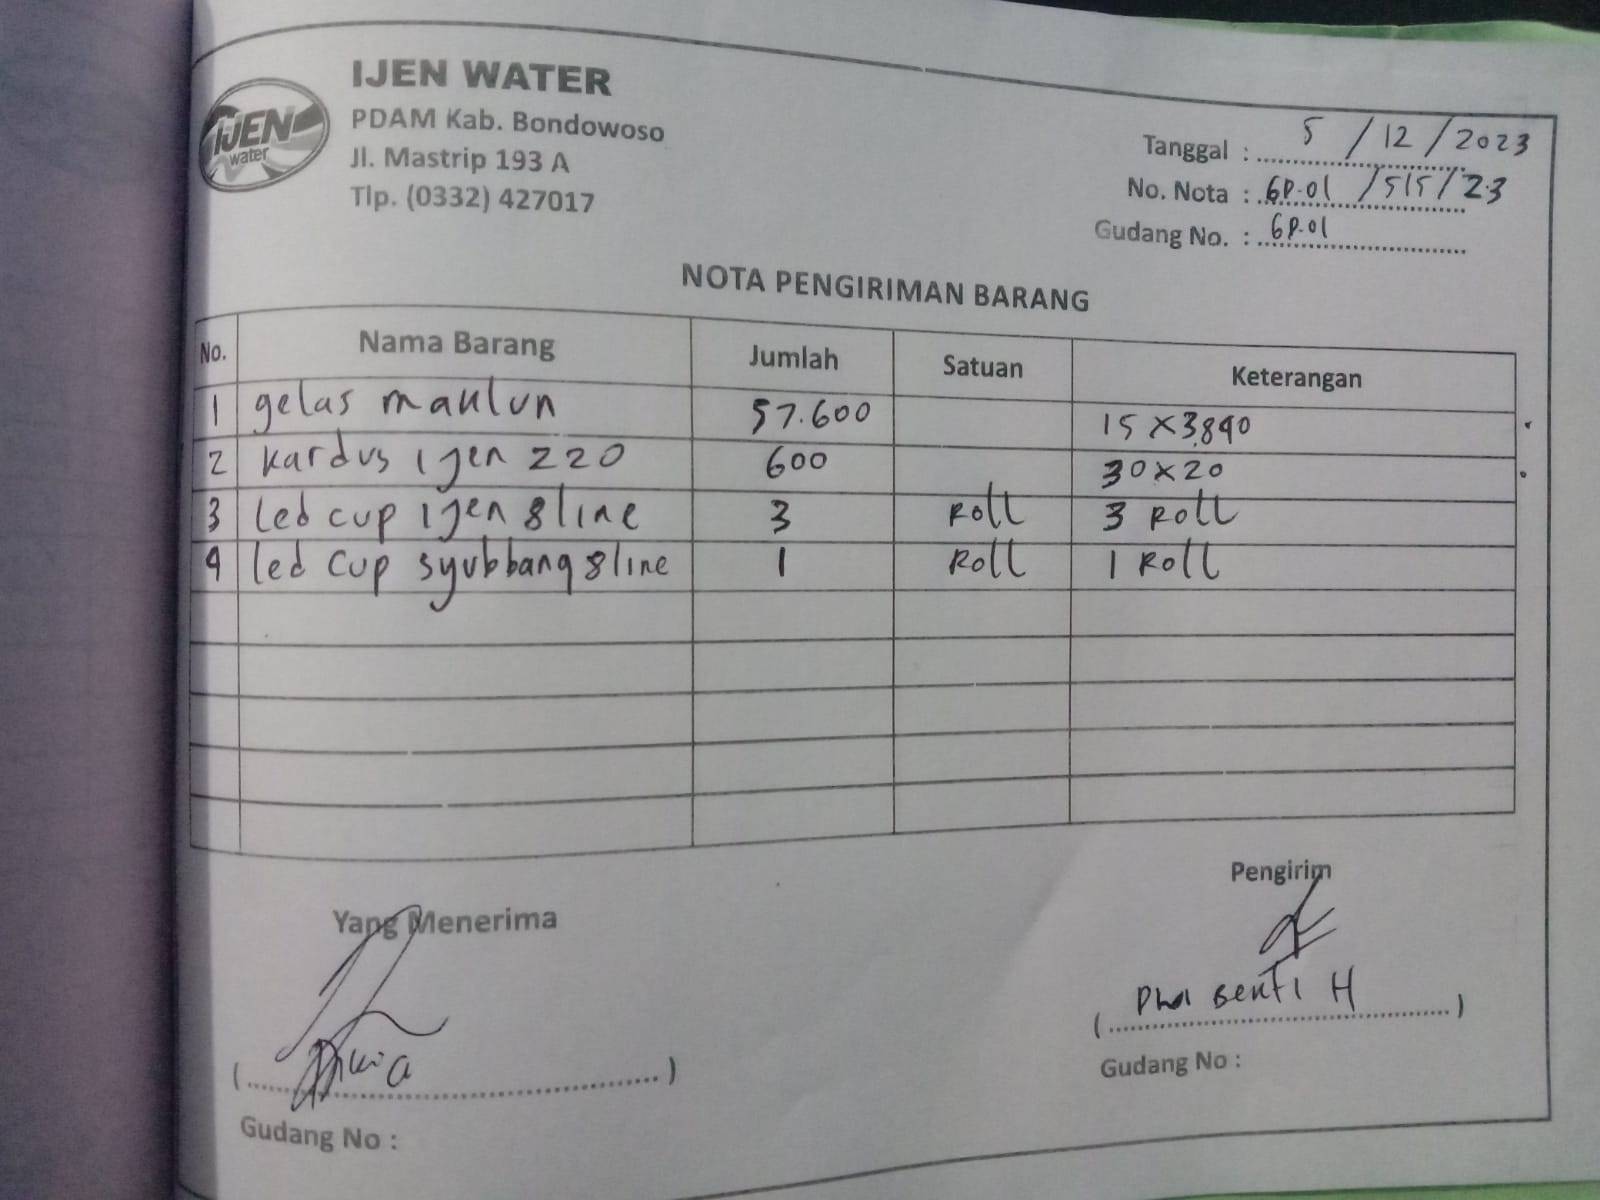 IJEN WATER
PDAM Kab. Bondowoso
Jl. Mastrip 193 A
Tlp. (0332) 427017
IJEN
water
Tanggal : 5 / 12 / 2023
No. Nota : GP.01 /515/23
Gudang No. : GP.01
NOTA PENGIRIMAN BARANG
No. Nama Barang Jumlah Satuan Keterangan
1 gelas maklun 57.600 15 x 3.840
2 kardus ijen 220 600 30 x 20
3 led cup ijen 8 line 3 Roll 3 Roll
4 led cup syubbang 8 line 1 Roll 1 Roll
Yang Menerima
Pengirim
H
Gudang No :
Gudang No :